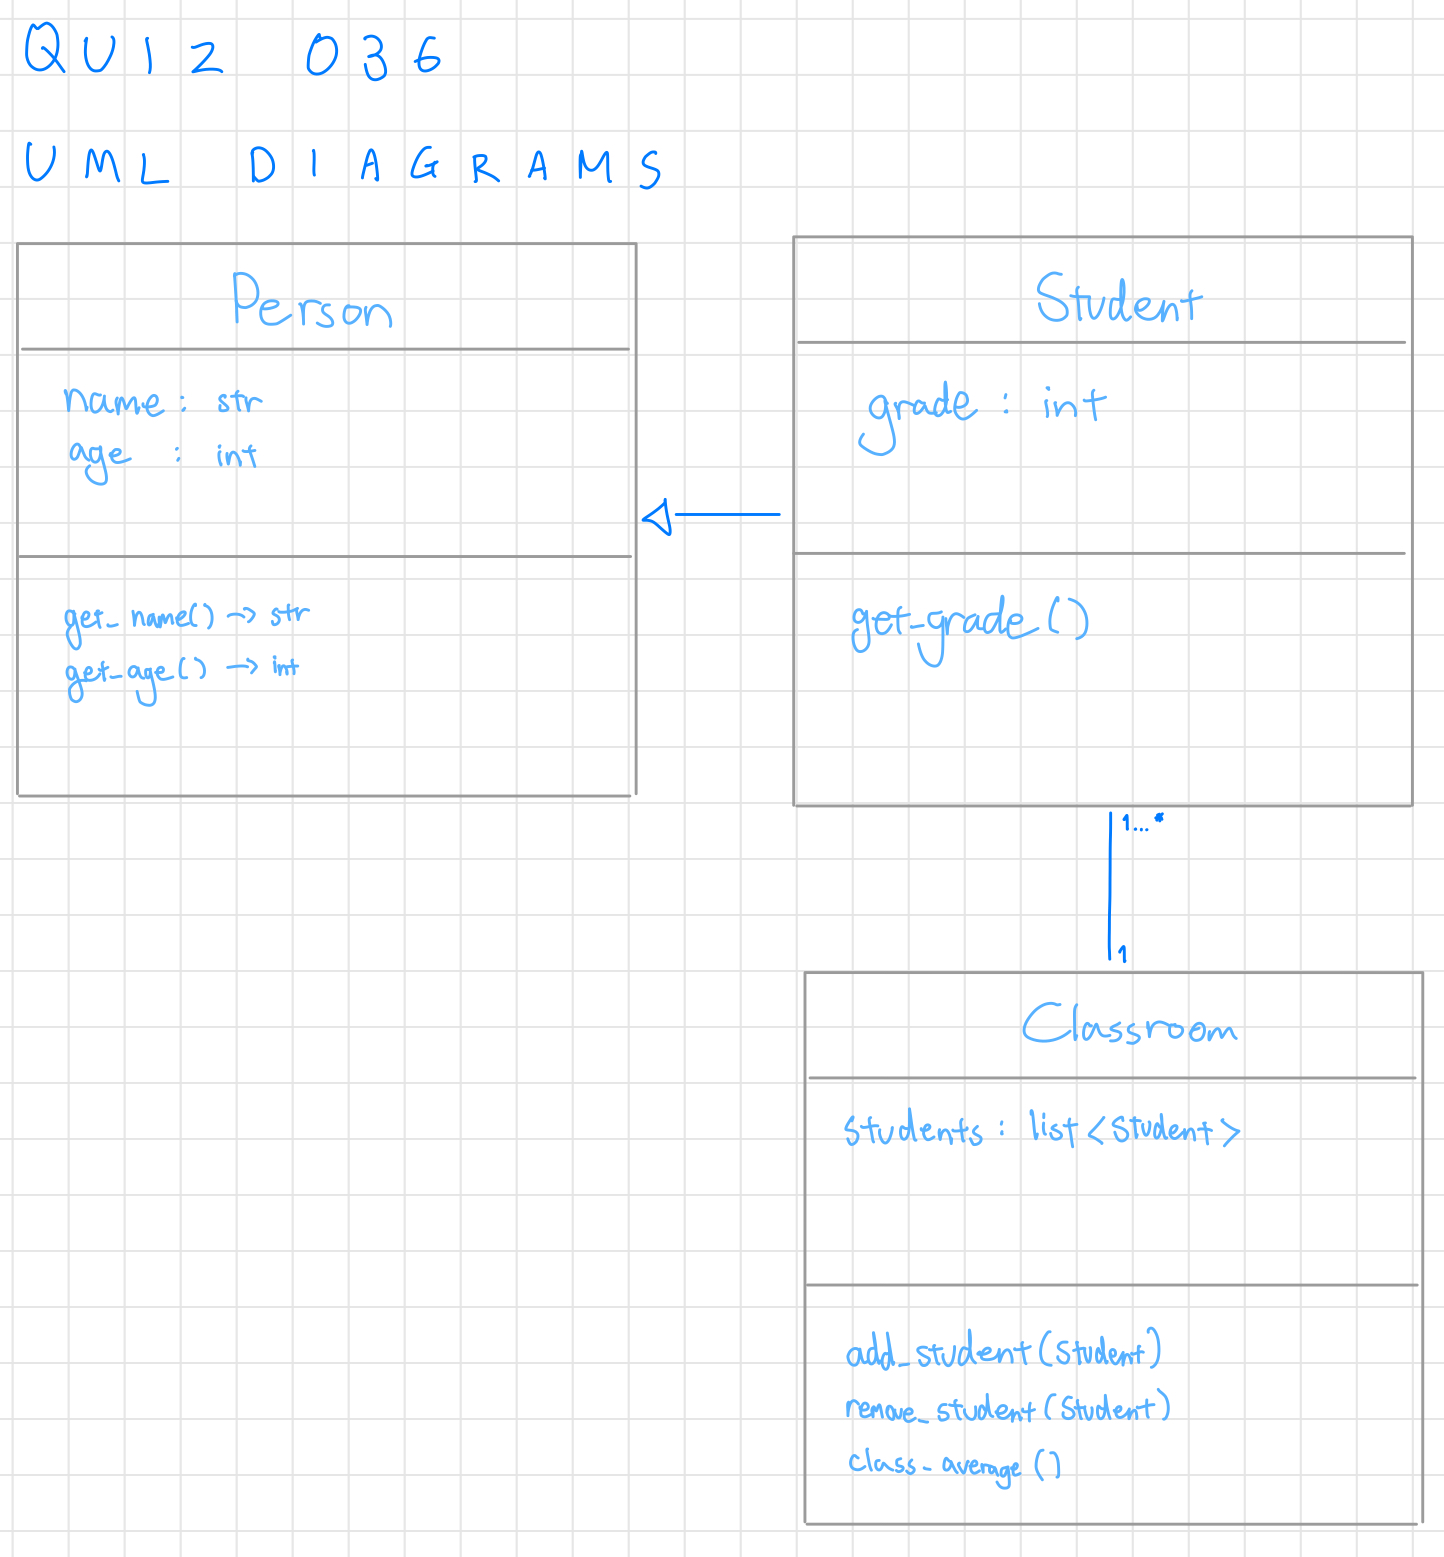 QUIZ 036
UML DIAGRAMS
Person
name : str
age : int
get_name() → str
get_age() → int
Student
grade : int
get_grade()
1...*
1
Classroom
students : list<Student>
add_student(Student)
remove_student(Student)
class_average()